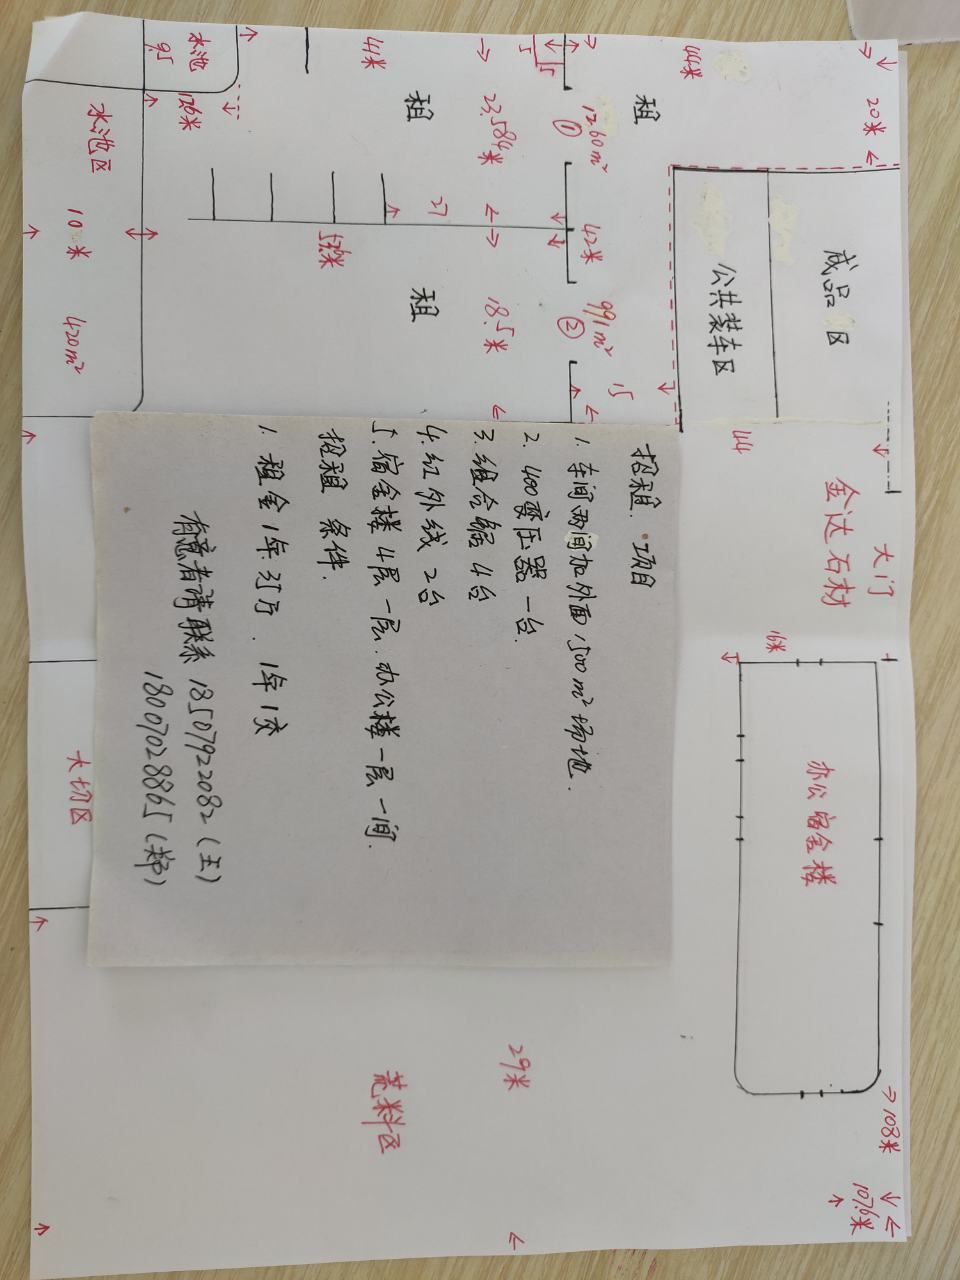 大门
金达石材
成品 区
公共装车区
办公宿舍楼
16米
20米
44米
44
108米
107.6米
租
1260m²
①
42米
991m²
②
15
15
5
41米
23.584米
租
27
57.6米
18.5米
租
水池
9.5
12.6米
水池区
10米
420m²
大切区
荒料区
29米
招租.项目
1. 车间两间加外面1500m²场地.
2. 400变压器一台.
3. 组合锯4台
4. 红外线2台
5. 宿舍楼4层一层.办公楼一层一间.
招租 条件.
1. 租金1年 万. 1年1交
有意者请联系 18507922082(王)
18007028865(郑)